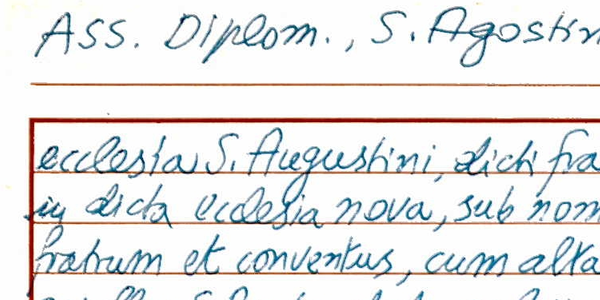 Ass. Diplom., S. Agostin
ecclesia S. Augustini, dicti fra
in dicta ecclesia nova, sub nom
fratrum et conventus, cum alta